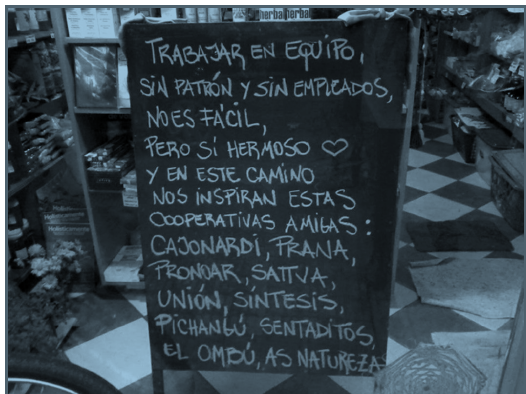 herbal herbal
TRABAJAR EN EQUIPO,
SIN PATRÓN Y SIN EMPLEADOS,
NO ES FÁCIL,
PERO SÍ HERMOSO ♡
Y EN ESTE CAMINO
NOS INSPIRAN ESTAS
COOPERATIVAS AMIGAS:
CAJONARDI, PRANA,
PRONOAR, SATTVA,
UNIÓN, SÍNTESIS,
PICHANGÚ, SENTADITOS,
EL OMBÚ, AS NATUREZA